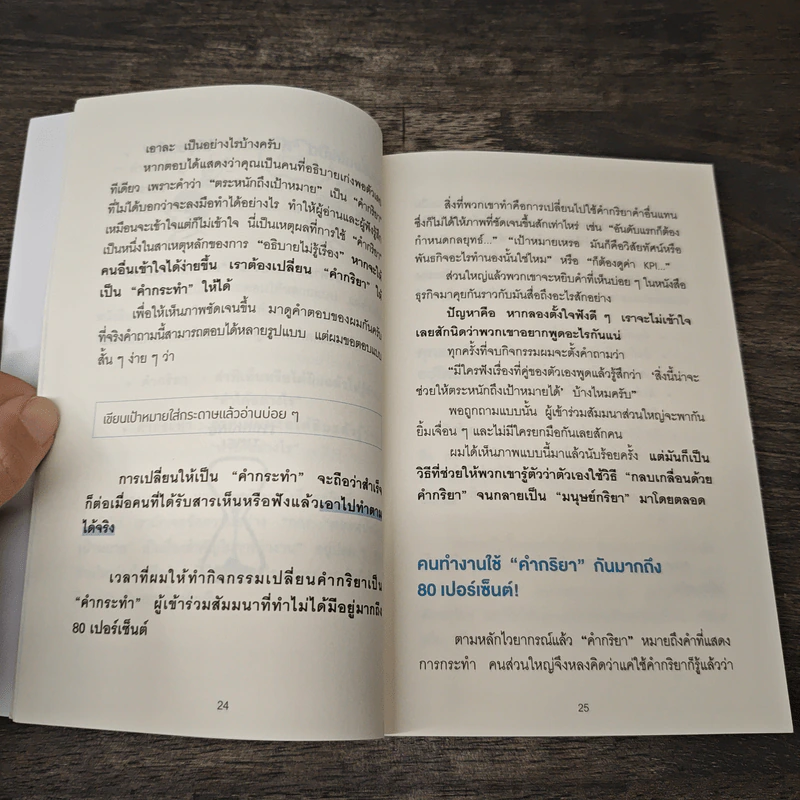 เอาละ เป็นอย่างไรบ้างครับ
หากตอบได้แสดงว่าคุณเป็นคนที่อธิบายเก่งพอตัวเลย
ทีเดียว เพราะคำว่า “ตระหนักถึงเป้าหมาย” เป็น “คำกริยา”
ที่ไม่ได้บอกว่าจะลงมือทำได้อย่างไร ทำให้ผู้อ่านและผู้ฟังรู้สึก
เหมือนจะเข้าใจแต่ก็ไม่เข้าใจ นี่เป็นเหตุผลที่การใช้ “คำกริยา”
เป็นหนึ่งในสาเหตุหลักของการ “อธิบายไม่รู้เรื่อง” หากจะให้
คนอื่นเข้าใจได้ง่ายขึ้น เราต้องเปลี่ยน “คำกริยา” ให้
เป็น “คำกระทำ” ให้ได้
เพื่อให้เห็นภาพชัดเจนขึ้น มาดูคำตอบของผมกันครับ
ที่จริงคำถามนี้สามารถตอบได้หลายรูปแบบ แต่ผมขอตอบแบบ
สั้น ๆ ง่าย ๆ ว่า
เขียนเป้าหมายใส่กระดาษแล้วอ่านบ่อย ๆ
การเปลี่ยนให้เป็น “คำกระทำ” จะถือว่าสำเร็จ
ก็ต่อเมื่อคนที่ได้รับสารเห็นหรือฟังแล้วเอาไปทำตาม
ได้จริง
เวลาที่ผมให้ทำกิจกรรมเปลี่ยนคำกริยาเป็น
“คำกระทำ” ผู้เข้าร่วมสัมมนาที่ทำไม่ได้มีอยู่มากถึง
80 เปอร์เซ็นต์
24
สิ่งที่พวกเขาทำคือการเปลี่ยนไปใช้คำกริยาคำอื่นแทน
ซึ่งก็ไม่ได้ให้ภาพที่ชัดเจนขึ้นสักเท่าไหร่ เช่น “อันดับแรกก็ต้อง
กำหนดกลยุทธ์...” “เป้าหมายเหรอ มันก็คือวิสัยทัศน์หรือ
พันธกิจอะไรทำนองนั้นใช่ไหม” หรือ “ก็ต้องดูค่า KPI...”
ส่วนใหญ่แล้วพวกเขาจะหยิบคำที่เห็นบ่อย ๆ ในหนังสือ
ธุรกิจมาคุยกันราวกับมันสื่อถึงอะไรสักอย่าง
ปัญหาคือ หากลองตั้งใจฟังดี ๆ เราจะไม่เข้าใจ
เลยสักนิดว่าพวกเขาอยากพูดอะไรกันแน่
ทุกครั้งที่จบกิจกรรมผมจะตั้งคำถามว่า
“มีใครฟังเรื่องที่คู่ของตัวเองพูดแล้วรู้สึกว่า ‘สิ่งนี้น่าจะ
ช่วยให้ตระหนักถึงเป้าหมายได้’ บ้างไหมครับ”
พอถูกถามแบบนั้น ผู้เข้าร่วมสัมมนาส่วนใหญ่จะพากัน
ยิ้มเจื่อน ๆ และไม่มีใครยกมือกันเลยสักคน
ผมได้เห็นภาพแบบนี้มาแล้วนับร้อยครั้ง แต่มันก็เป็น
วิธีที่ช่วยให้พวกเขารู้ตัวว่าตัวเองใช้วิธี “กลบเกลื่อนด้วย
คำกริยา” จนกลายเป็น “มนุษย์กริยา” มาโดยตลอด
คนทำงานใช้ “คำกริยา” กันมากถึง
80 เปอร์เซ็นต์!
ตามหลักไวยากรณ์แล้ว “คำกริยา” หมายถึงคำที่แสดง
การกระทำ คนส่วนใหญ่จึงหลงคิดว่าแค่ใช้คำกริยาก็รู้แล้วว่า
25